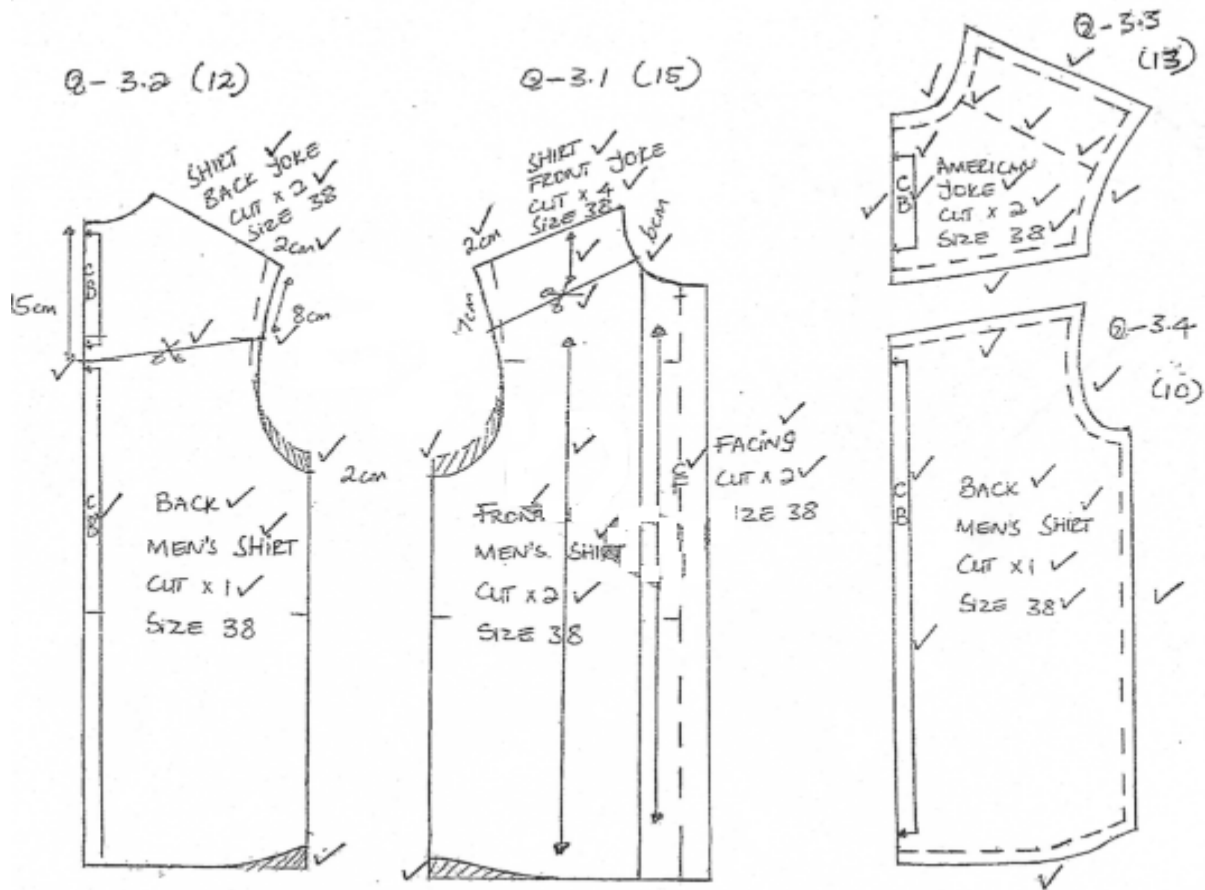 Q-3.2 (12)
SHIRT
BACK YOKE
CUT x 2
SIZE 38
2cm
CB
5cm
8cm
2cm
CB
BACK
MEN'S SHIRT
CUT x 1
SIZE 38
Q-3.1 (15)
SHIRT
FRONT YOKE
CUT x 4
SIZE 38
2cm
6cm
7cm
FRONT
MEN'S SHIRT
CUT x 2
SIZE 38
FACING
CUT x 2
IZE 38
Q-3.3
(13)
CB
AMERICAN
YOKE
CUT x 2
SIZE 38
Q-3.4
(10)
CB
BACK
MEN'S SHIRT
CUT x 1
SIZE 38